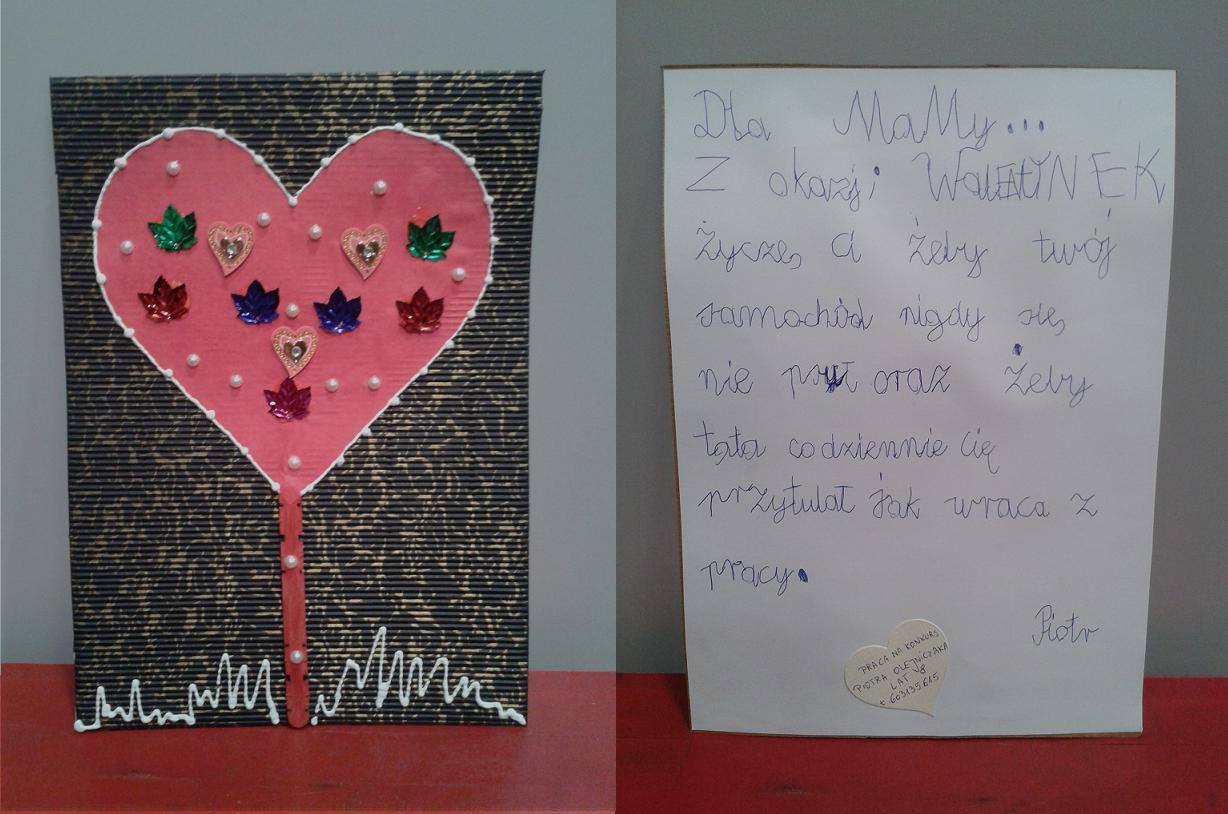 Dla MaMy...
Z okazji WalEtYNEK
życzę Ci żeby twój
samochód nigdy się
nie psuł oraz żeby
tata codziennie Cię
przytulał jak wraca z
pracy.
Piotr
PRACA NA KONKURS
PIOTRA OLEJNICZAKA
LAT 8
t. 603135615